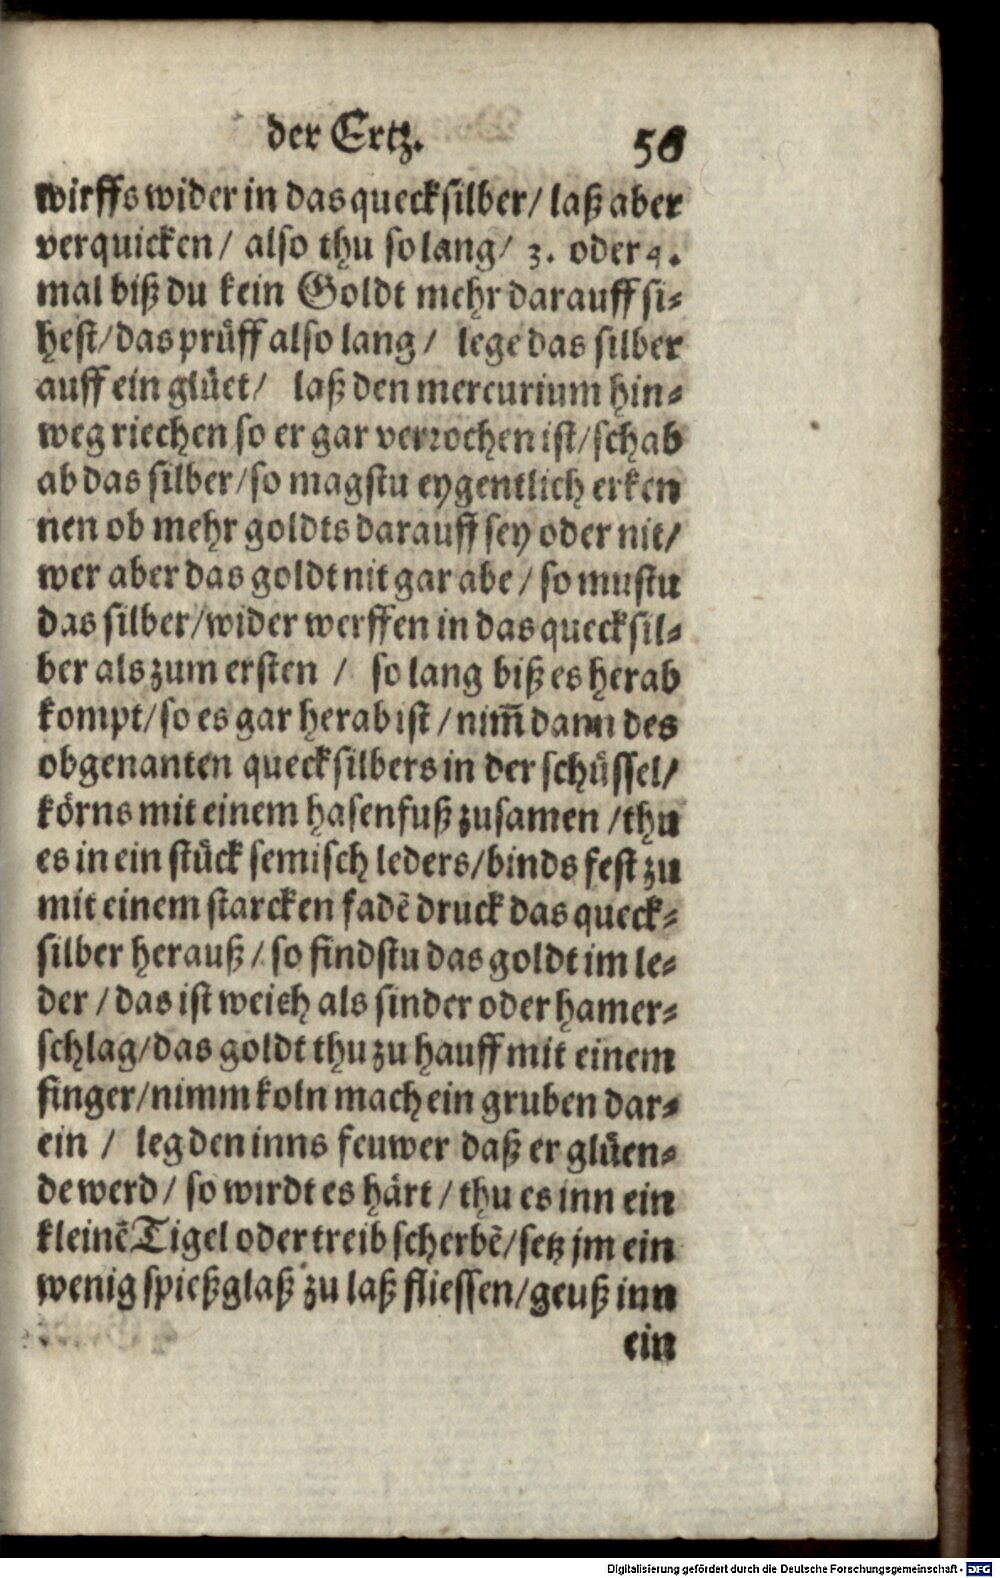 der Ertz. 56
wirffs wider in das quecksilber/ laß aber
verquicken/ also thu so lang/ 3. oder 4.
mal biß du kein Goldt mehr darauff si-
hest/das prüff also lang/ lege das silber
auff ein glüet/ laß den mercurium hin-
weg riechen so er gar verrochen ist/schab
ab das silber/so magstu eygentlich erken
nen ob mehr goldts darauff sey oder nit/
wer aber das goldt nit gar abe/so mustu
das silber/wider werffen in das quecksil-
ber als zum ersten / so lang biß es herab
kompt/so es gar herab ist/nim̄ dann des
obgenanten quecksilbers in der schüssel/
körns mit einem hasenfuß zusamen /thu
es in ein stück semisch leders/binds fest zu
mit einem starcken fadē druck das queck-
silber herauß/ so findstu das goldt im le-
der / das ist weich als sinder oder hamer-
schlag/das goldt thu zu hauff mit einem
finger/nimm koln mach ein gruben dar-
ein / leg den inns feuwer daß er glüen-
de werd/ so wirdt es härt/thu es inn ein
kleinē Tigel oder treib scherbē/setz jm ein
wenig spießglaß zu laß fliessen/geuß inn
ein
Digitalisierung gefördert durch die Deutsche Forschungsgemeinschaft - DFG